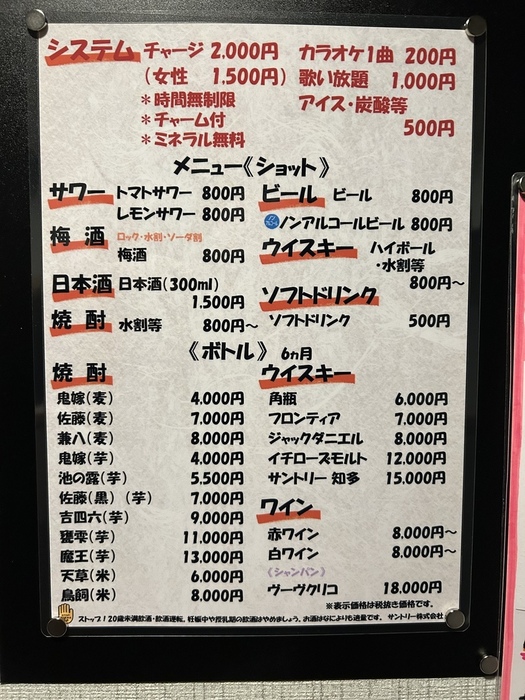 システム チャージ 2.000円 カラオケ1曲 200円
（女性 1.500円） 歌い放題 1.000円
＊時間無制限 アイス・炭酸等
＊チャーム付 500円
＊ミネラル無料
メニュー《ショット》
サワー トマトサワー 800円
レモンサワー 800円
梅酒 ロック・水割・ソーダ割
梅酒 800円
日本酒 日本酒(300ml)
1.500円
焼酎 水割等 800円～
ビール ビール 800円
ノンアルコールビール 800円
ウイスキー ハイボール
・水割等
800円～
ソフトドリンク
ソフトドリンク 500円
《ボトル》 6ヵ月
焼酎
鬼嫁(麦) 4.000円
佐藤(麦) 7.000円
兼八(麦) 8.000円
鬼嫁(芋) 4.000円
池の露(芋) 5.500円
佐藤(黒)(芋) 7.000円
吉四六(芋) 9.000円
甕雫(芋) 11.000円
魔王(芋) 13.000円
天草(米) 6.000円
鳥飼(米) 8.000円
ウイスキー
角瓶 6.000円
フロンティア 7.000円
ジャックダニエル 8.000円
イチローズモルト 12.000円
サントリー 知多 15.000円
ワイン
赤ワイン 8.000円～
白ワイン 8.000円～
《シャンパン》
ヴーヴクリコ 18.000円
※表示価格は税抜き価格です。
ストップ！20歳未満飲酒・飲酒運転。妊娠中や授乳期の飲酒はやめましょう。お酒はなによりも適量です。 サントリー株式会社